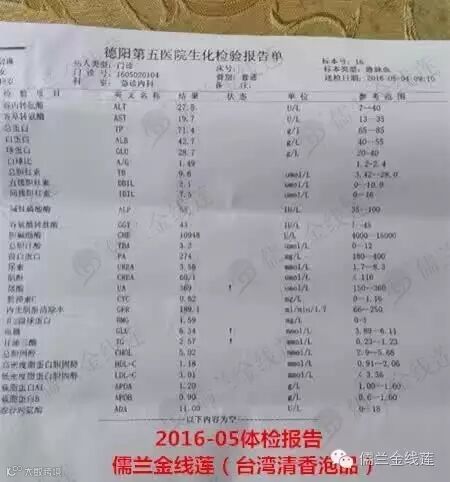 德阳第五医院生化检验报告单
病人类型：门诊 床号： 标本号：16
门诊号：1605020104 费别：普通
科 室：急诊内科 备注： 送检日期：2016-05-04 09:15
检验项目 英文名称 结果 状态 单位 参考范围
谷丙转氨酶 ALT 27.8 U/L 7--40
谷草转氨酶 AST 19.7 U/L 13--35
总蛋白 TP 71.4 g/L 65--85
白蛋白 ALB 42.7 g/L 40--55
球蛋白 GLO 28.7 g/L 20-40
白球比 A/G 1.49 1.2-2.4
总胆红素 TB 9.6 umol/L 3.42--28.0
直接胆红素 DBIL 2.1 umol/L 0--10.0
间接胆红素 IBIL 7.5 umol/L 0--16
碱性磷酸酶 ALP IU/L 35--100
谷氨酰转肽酶 GGT 43 IU/L --45
胆碱酯酶 CHE 10948 U/L 4000--15000
总胆汁酸 TBA 3.2 umol/L 0--12
前白蛋白 PA 274 mg/L 180--400
尿素 UREA 3.58 mmol/L 1.7--8.3
肌酐 CREA umol/L
尿酸 UA 369 ↑ umol/L 150--360
胱抑素C CYC 0.62 mg/L 0--1.16
内生肌酐清除水 GFR 189.1 ml/min/1.7 66--250
β2微球蛋白 BMG 1.59 mg/L 0-3
血糖 GLU 6.34 ↑ mmol/L 3.89--6.11
甘油三酯 TG 2.57 ↑ mmol/L 0.23--1.23
总胆固醇 CHOL 5.02 mmol/L 2.9--5.68
高密度脂蛋白胆固醇 HDL-C 1.18 mmol/L 0.91--2.06
低密度脂蛋白胆固醇 LDL-C 3.01 mmol/L ≤ 3.36
载脂蛋白A1 APOA 1.20 g/L 1.00--1.60
载脂蛋白B APOB 0.90 g/L 0.6--1.10
腺苷脱氨酶 ADA 11.00 U/L 0--18
--以下内容为空--
2016-05体检报告
儒兰金线莲（台湾清香泡品）
儒兰金线莲
大数跨境